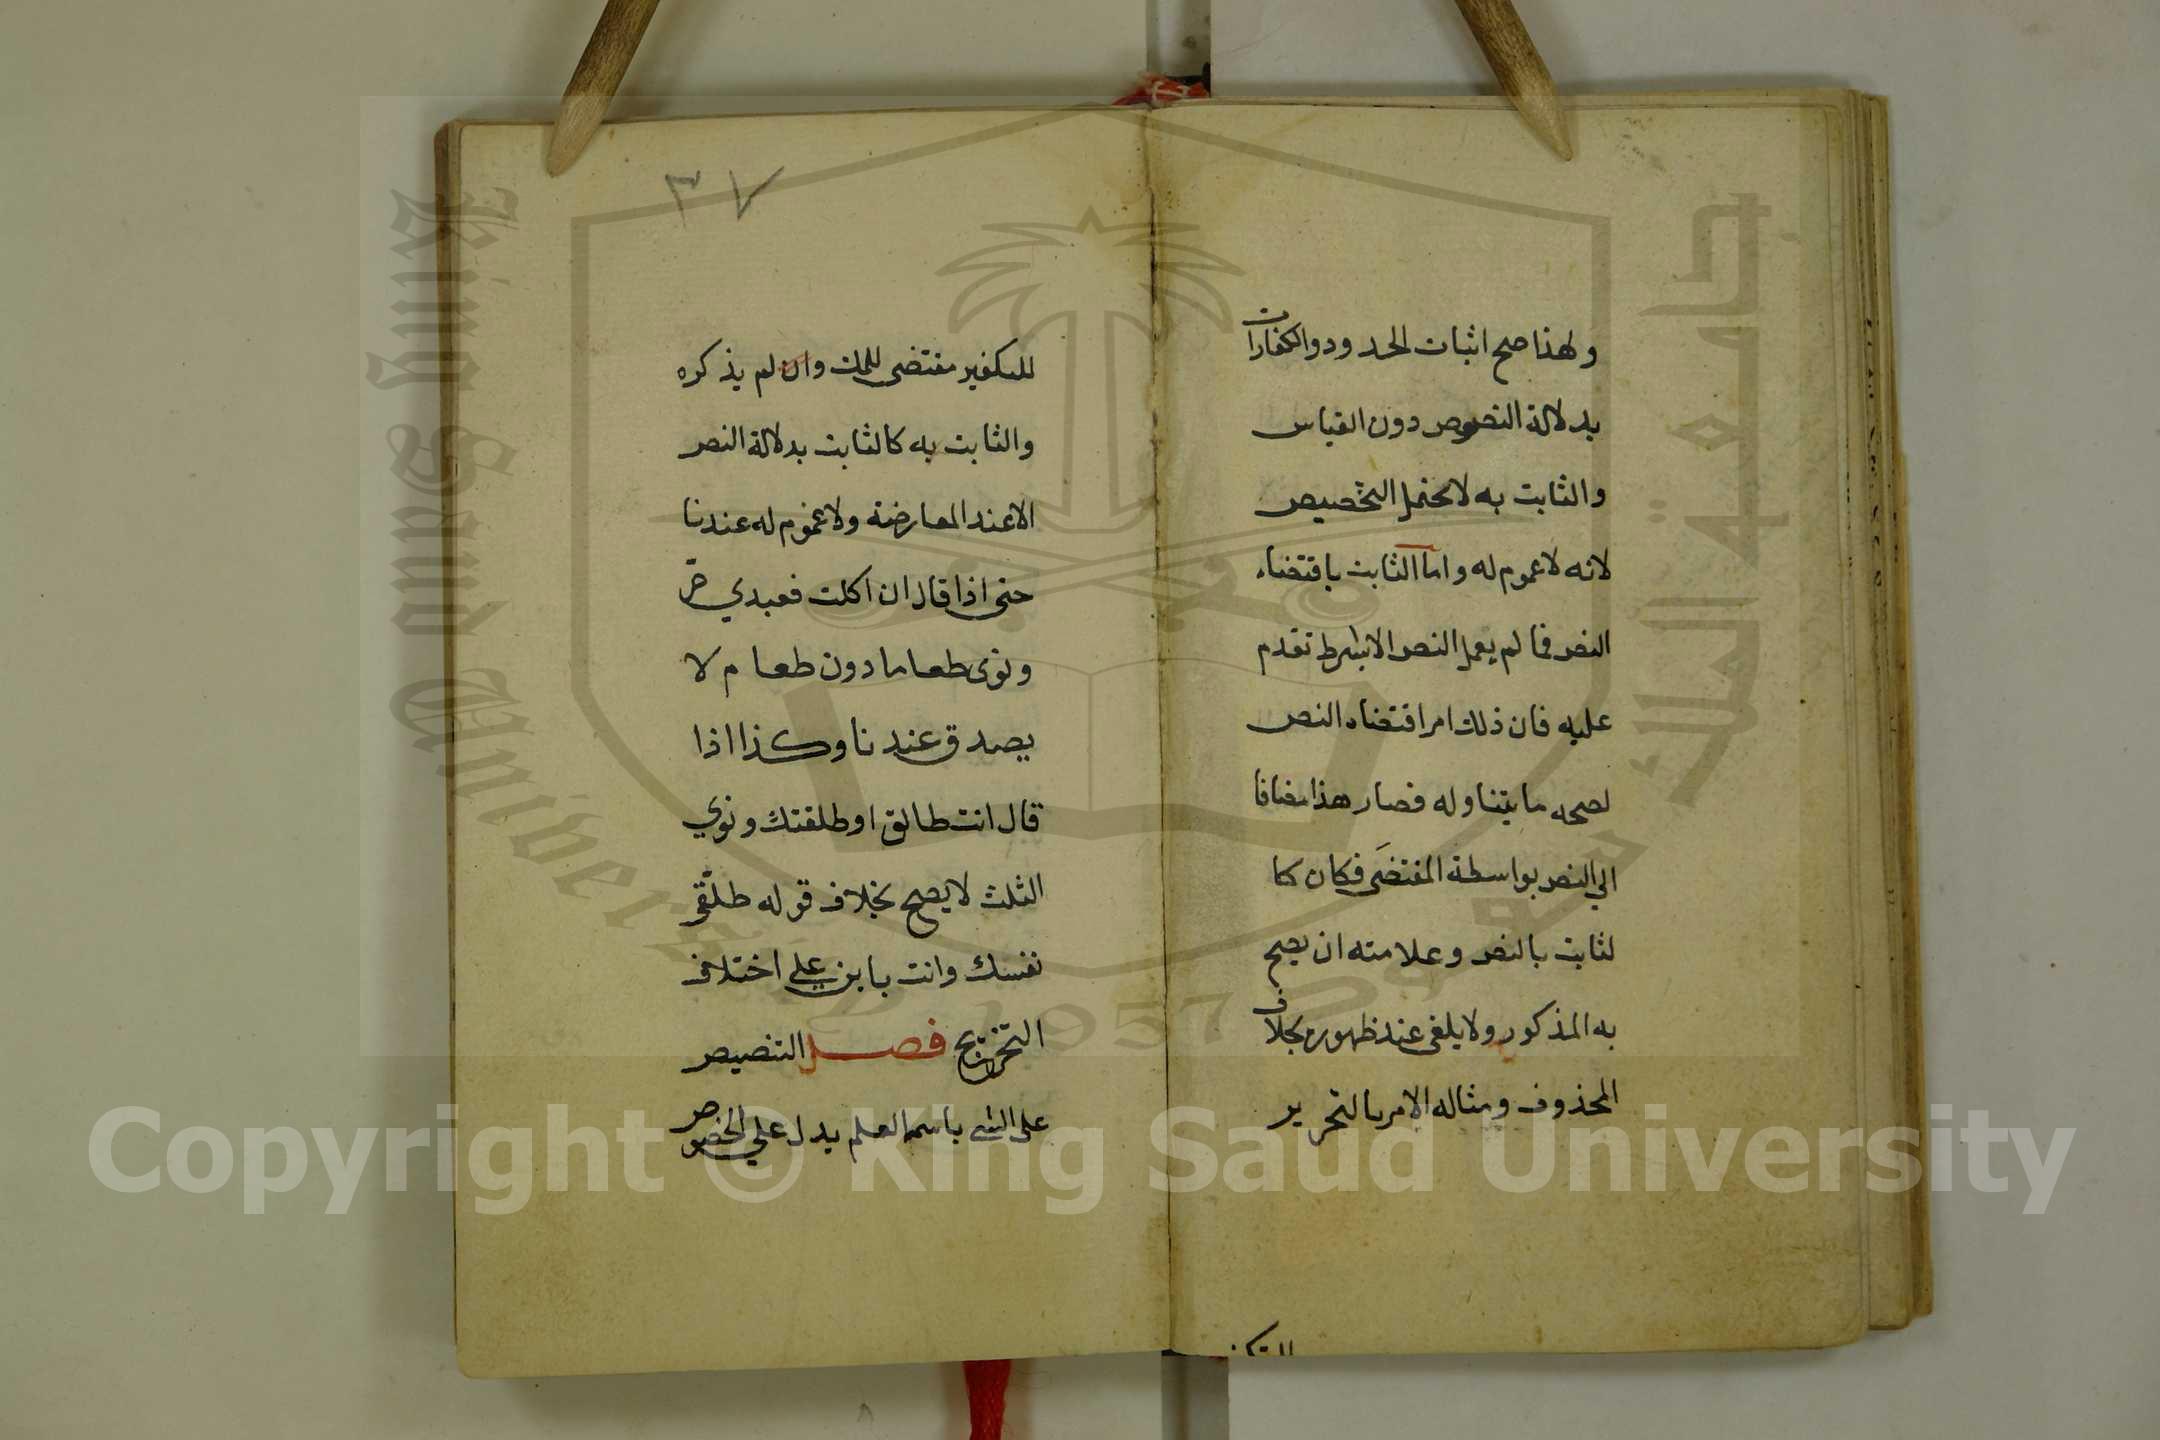 ولهذا صح اثبات الحدود والكفارات
بدلالة النصوص دون القياس
والثابت به لا يحتمل التخصيص
لانه لا عموم له واما الثابت باقتضاء
النص فما لم يعمل النص الا بشرط تقدم
عليه فان ذلك امر اقتضاه النص
لصحه ما يتناوله فصار هذا مضافا
الي النص بواسطة المقتضَى فكان كا
لثابت بالنص وعلامته ان يصح
به المذكور ولا يلغى عند ظهوره بخلاف
المحذوف ومثاله الامر بالتحرير
للتكفير
٣٧
للتكفير مقتضى للملك وان لم يذكره
والثابت به كالثابت بدلالة النص
الا عند المعارضة ولا عموم له عندنا
حتى اذا قال ان اكلت فعبدي حرّ
ونوى طعاما دون طعام لا
يصدق عندنا وكذا اذا
قال انت طالق او طلقتك ونوي
الثلث لا يصح بخلاف قوله طلّقى
نفسك وانت باين علي اختلاف
التخريج فصل التنصيص
على الشي باسمه العلم يدل علي الخصوص
King Saud University
جامعة الملك سعود
1957
Copyright © King Saud University